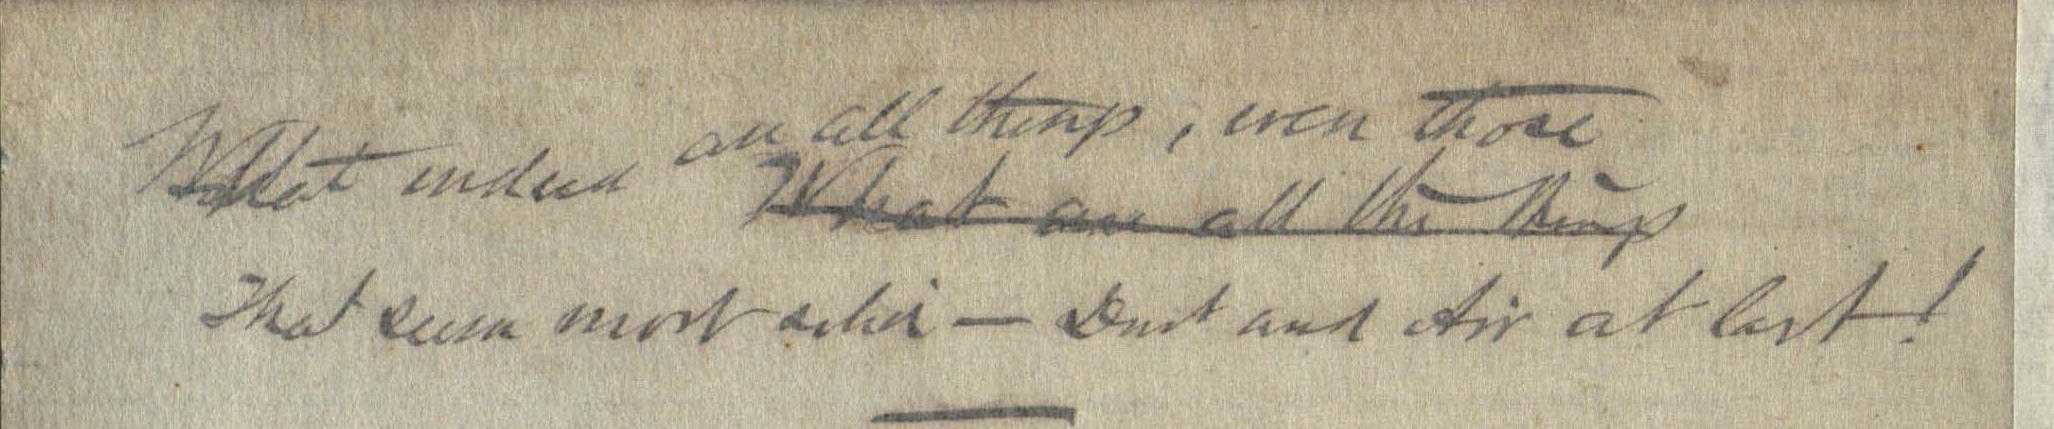 What indeed are all things, even those
What are all the things
That seem most solid — Dust and Air at last!